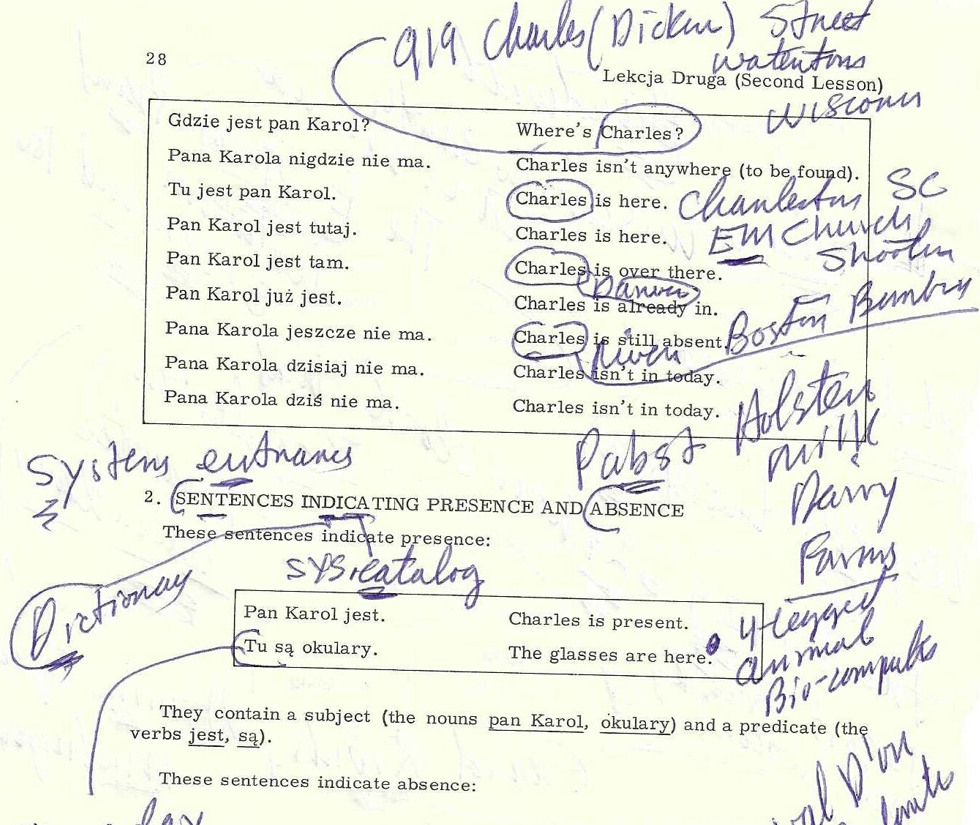 919 Charles (Dicken) Street
28
Lekcja Druga (Second Lesson)
Gdzie jest pan Karol? Where's Charles?
Pana Karola nigdzie nie ma. Charles isn't anywhere (to be found).
Tu jest pan Karol. Charles is here.
Charleston SC
Pan Karol jest tutaj. Charles is here.
EM Church
Pan Karol jest tam. Charles is over there.
Pan Karol już jest. Charles is already in.
Pana Karola jeszcze nie ma. Charles is still absent.
Boston
Pana Karola dzisiaj nie ma. Charles isn't in today.
Pana Karola dziś nie ma. Charles isn't in today.
Holsten
milk
Pabst
Systems
2. SENTENCES INDICATING PRESENCE AND ABSENCE
These sentences indicate presence:
Farms
sys.catalog
Dictionary
Pan Karol jest. Charles is present.
Tu są okulary. The glasses are here.
4-legged
animal
Bio-computer
They contain a subject (the nouns pan Karol, okulary) and a predicate (the
verbs jest, są).
These sentences indicate absence: